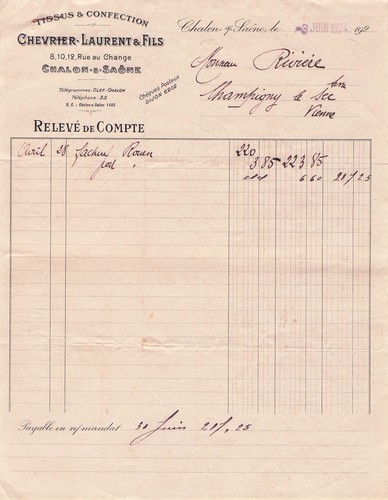 TISSUS & CONFECTION
CHEVRIER-LAURENT & FILS
8,10,12, Rue au Change
CHALON-S-SAÔNE
Télégrammes: CLEF-CHALON
Téléphone: 3.5
R. C. : Chalon-s-Saône 1485
Chèques Postaux
DIJON 6202
Chalon s/ Saône, le 3 JUIN 192
Monsieur Rivière
Champigny le Sec
Vienne
RELEVÉ DE COMPTE
Avril 28 facture Rouen 220
port 3 85 223 85
6 60 217 25
Payable en n/mandat 30 Juin 217,25